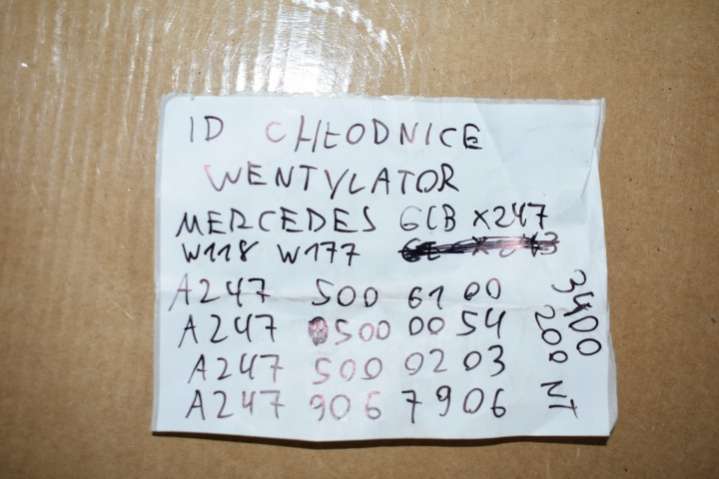 ID CHŁODNICE
WENTYLATOR
MERCEDES GLB X247
W118 W177
A247 500 61 00
A247 500 00 54
A247 500 02 03
A247 906 7906
3400
200 NT